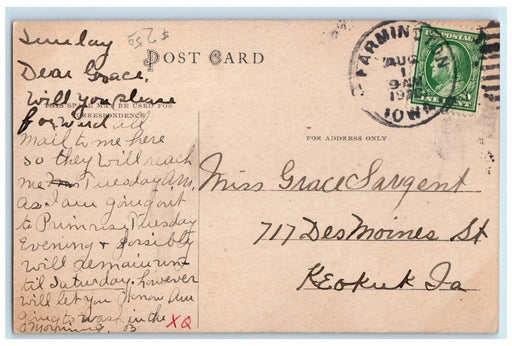 Sunday
$2.50
POST CARD
Dear Grace,
Will you please
THIS SPACE MAY BE USED FOR
CORRESPONDENCE
forward all
mail to me here
so they will reach
me Tuesday A.M.
as I am going out
to Primrose Tuesday
Evening + possibly
will remain un-
til Saturday. however
will let you know Am
going to wash in the
Morning. B
XQ
FARMINGTON
AUG
1
9 AM
IOWA
U.S. POSTAGE
FOR ADDRESS ONLY
Miss Grace Sargent
717 Des Moines St
Keokuk Ia